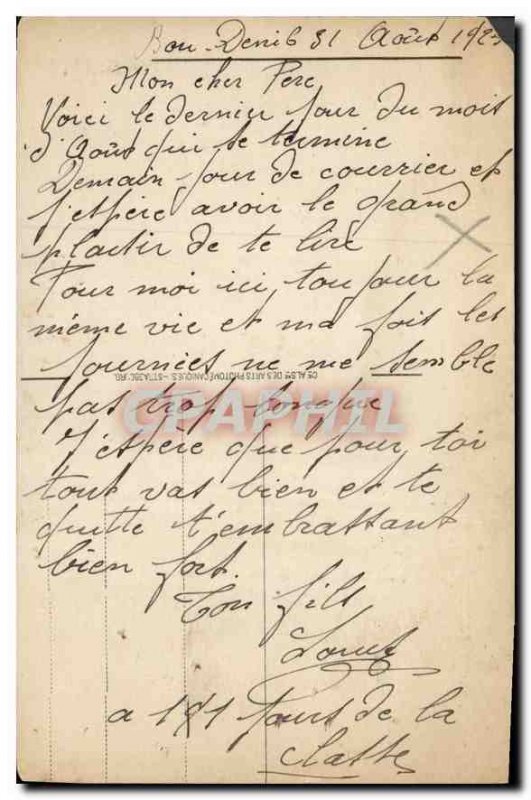 Bou-Denib 31 Août 1923
Mon cher Pere
Voici le dernier jour du mois
d'Août qui se termine
Demain jour de courrier et
j'espère avoir le grand
plaisir de te lire
Pour moi ici, toujour la
même vie et ma fois les
journées ne me semble
Cie ALSne DES ARTS PHOTOMÉCANIQUES.-STRASBG.
pas trop longue
CPAPHIL
J'espère que pour toi
tout vas bien et te
quitte t'embrassant
bien fort.
Ton fils
Louis
a 181 Jours de la
classe